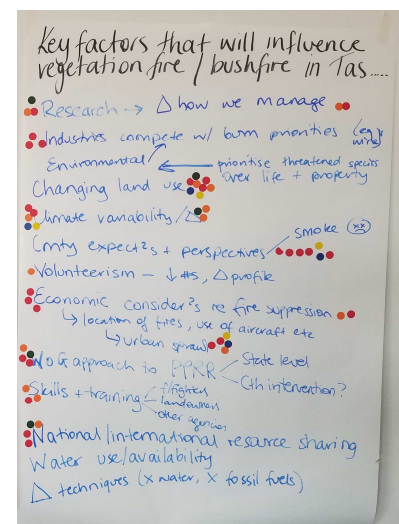 Key factors that will influence
vegetation fire / bushfire in Tas.....
Research --> Δ how we manage
Industries compete w/ burn priorities (eg wine)
Environmental ← prioritise threatened species
over life + property
Changing land use
Climate variability / Δ
Cmty expect²s + perspectives
smoke
Volunteerism – ↓ #s, Δ profile
Economic consider²s re fire suppression
↳ location of fires, use of aircraft etc
↳ urban sprawl
WoG approach to PPRR
State level
Cth intervention?
Skills + training
f/fighters
landowners
other agencies
National/international resource sharing
Water use/availability
Δ techniques (x water, x fossil fuels)